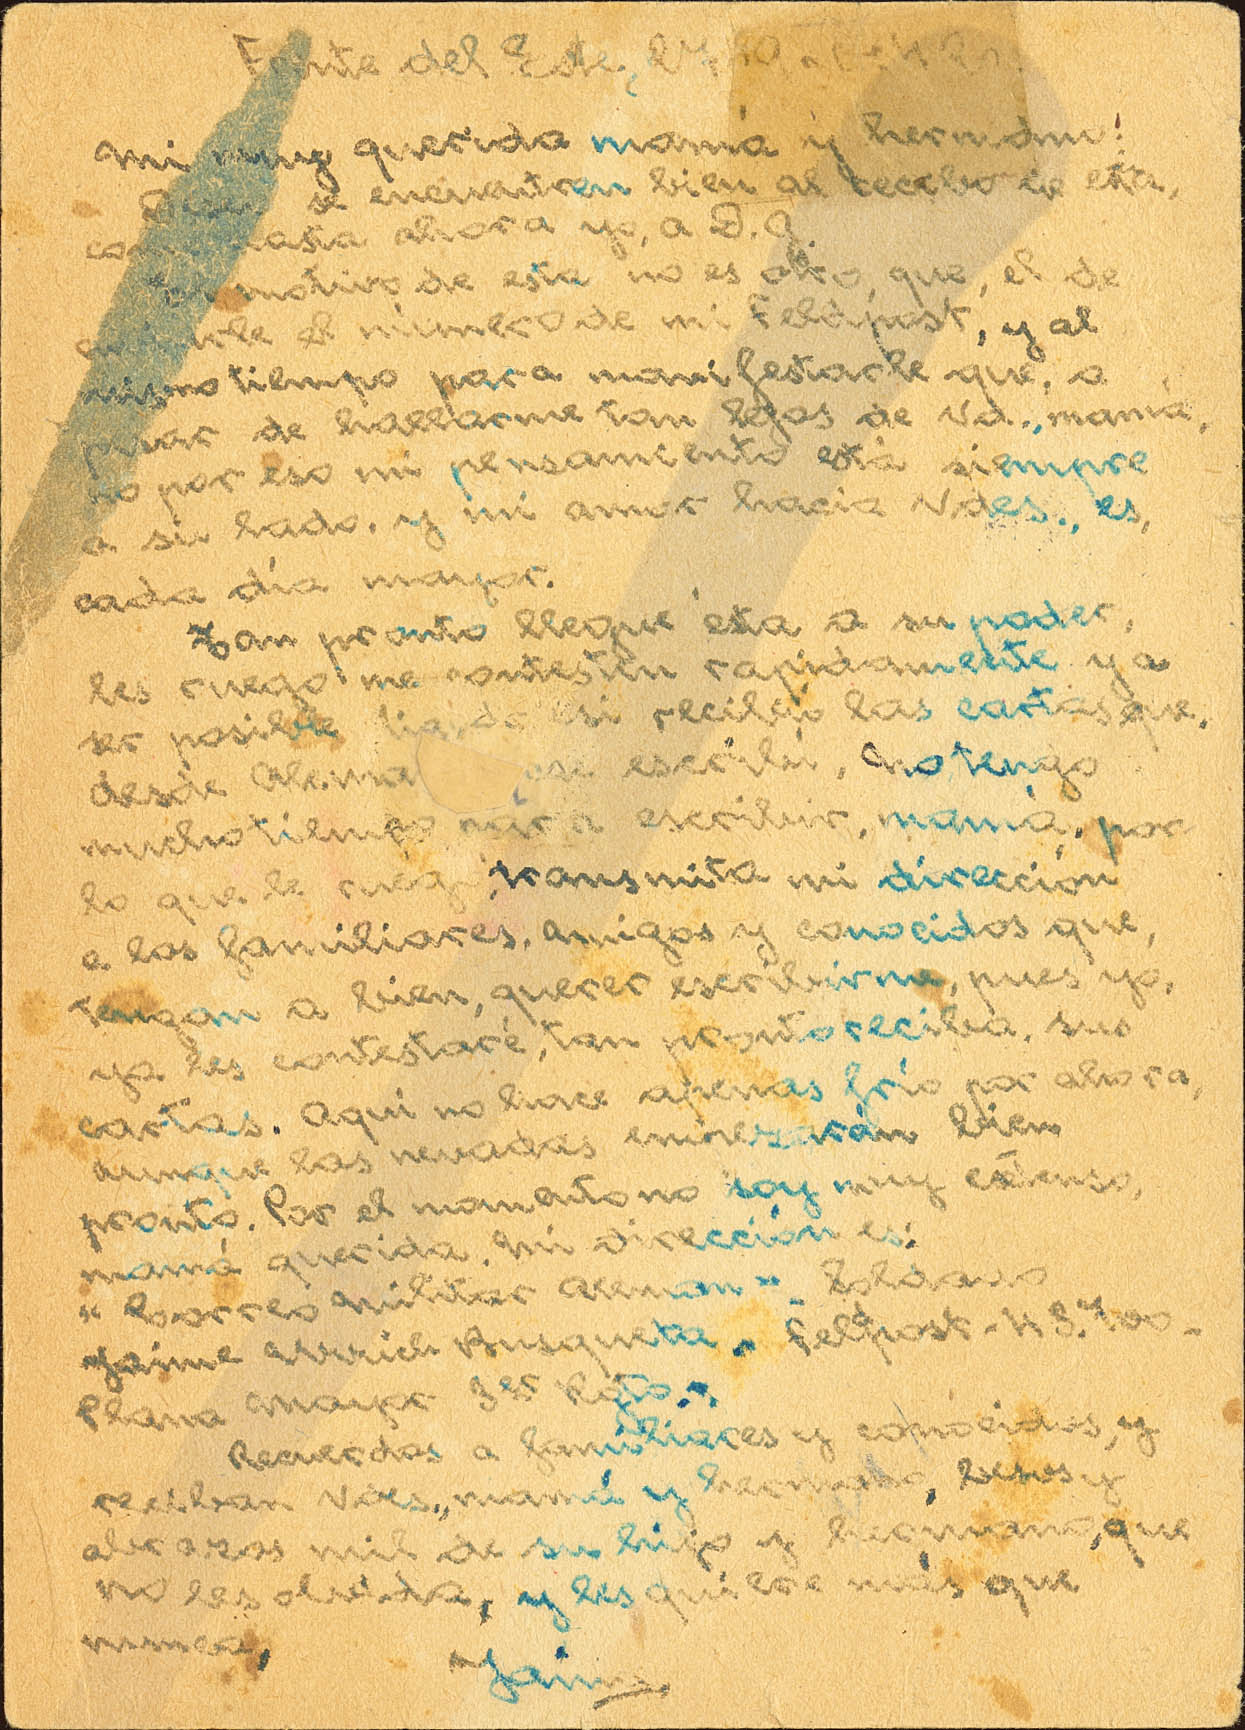 Frente del Este, 27
Mi muy querida mamá y hermano:
Deseo se encuentren bien al recibo de esta,
como hasta ahora yo, a D. g.
motivo de esta no es otro, que, el de
el número de mi Feldpost, y al
mismo tiempo para manifestarle que, a
pesar de hallarme tan lejos de Vd., mamá,
no por eso mi pensamiento está siempre
a su lado. y mi amor hacia Vdes., es,
cada día mayor.
Tan pronto llegue ésta a su poder,
les ruego me contesten rapidamente y a
ser posible si recibió las cartas que,
desde escribí, No tengo
mucho tiempo para escribir, mamá, por
lo que le ruego, transmita mi dirección
a los familiares, amigos y conocidos que,
tengan a bien, querer escribirme, pues yo,
ya les contestaré, tan pronto reciba, sus
cartas. Aquí no hace apenas frío por ahora,
aunque las nevadas empezarán bien
pronto. Por el momento no soy muy extenso,
mamá querida. Mi dirección es:
"Correo Militar Aleman" - Soldado
Jaime Busqueta. Feldpost - N
Plana Mayor 3er Rgto.".
Recuerdos a familiares y conocidos, y
reciban Vdes., mamá y hermano, besos y
abrazos mil de su hijo y hermano, que
no les olvida, y les quiere más que
nunca,
Jaime.